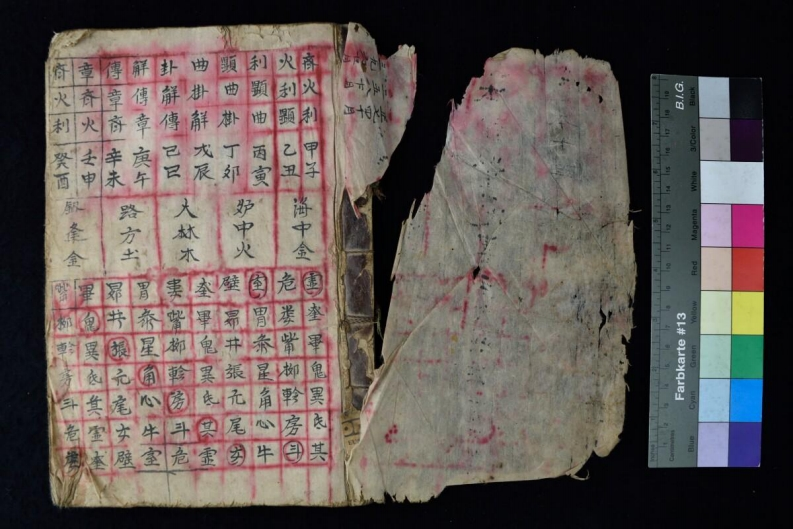 斉火利 甲子
火利顯 乙丑
利顯曲 丙寅
顕曲掛 丁卯
曲掛解 戊辰
卦解傳 己巳
解傳章 庚午
傳章斉 辛未
章斉火 壬申
斉火利 癸酉
海中金
炉中火
大林木
路方土
金
虚奎畢鬼異氐其
危娄觜柳軫房斗
室胃参星角心牛
壁昴井張亢尾女
奎畢鬼異氐其虚
娄觜柳軫房斗危
胃参星角心牛室
昴井張亢尾女壁
畢鬼異氐其虚奎
觜柳軫房斗危
B.I.G.
Farbkarte #13
Black
3/Color
White
Magenta
Red
Yellow
Green
Cyan
Blue